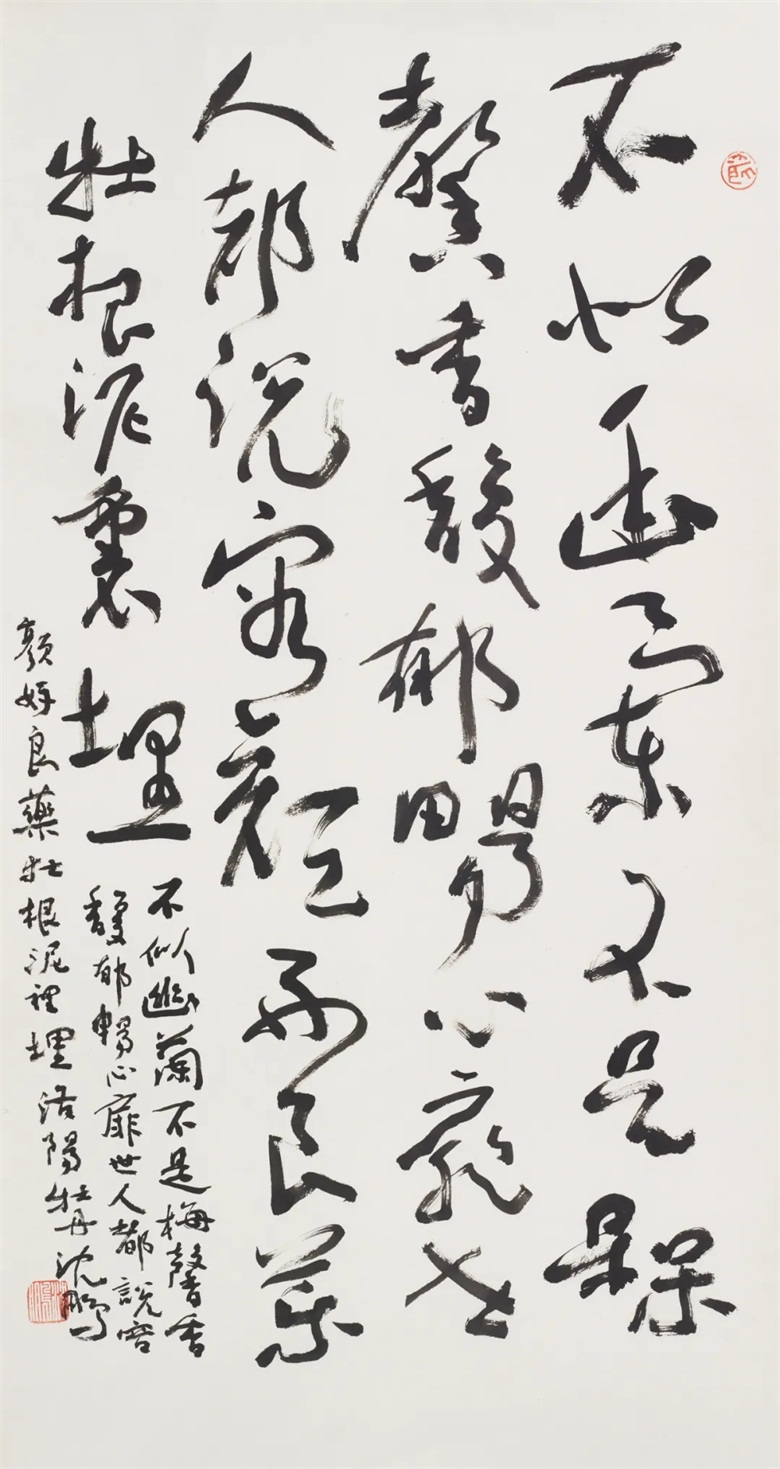 不似幽蘭不是槑
馨香馥郁暢心扉世
人都説容顔好良藥
牡根泥裏埋
不似幽蘭不是梅馨香
馥郁暢心扉世人都說容
顔好良藥牡根泥裡埋洛陽牡丹沈鵬